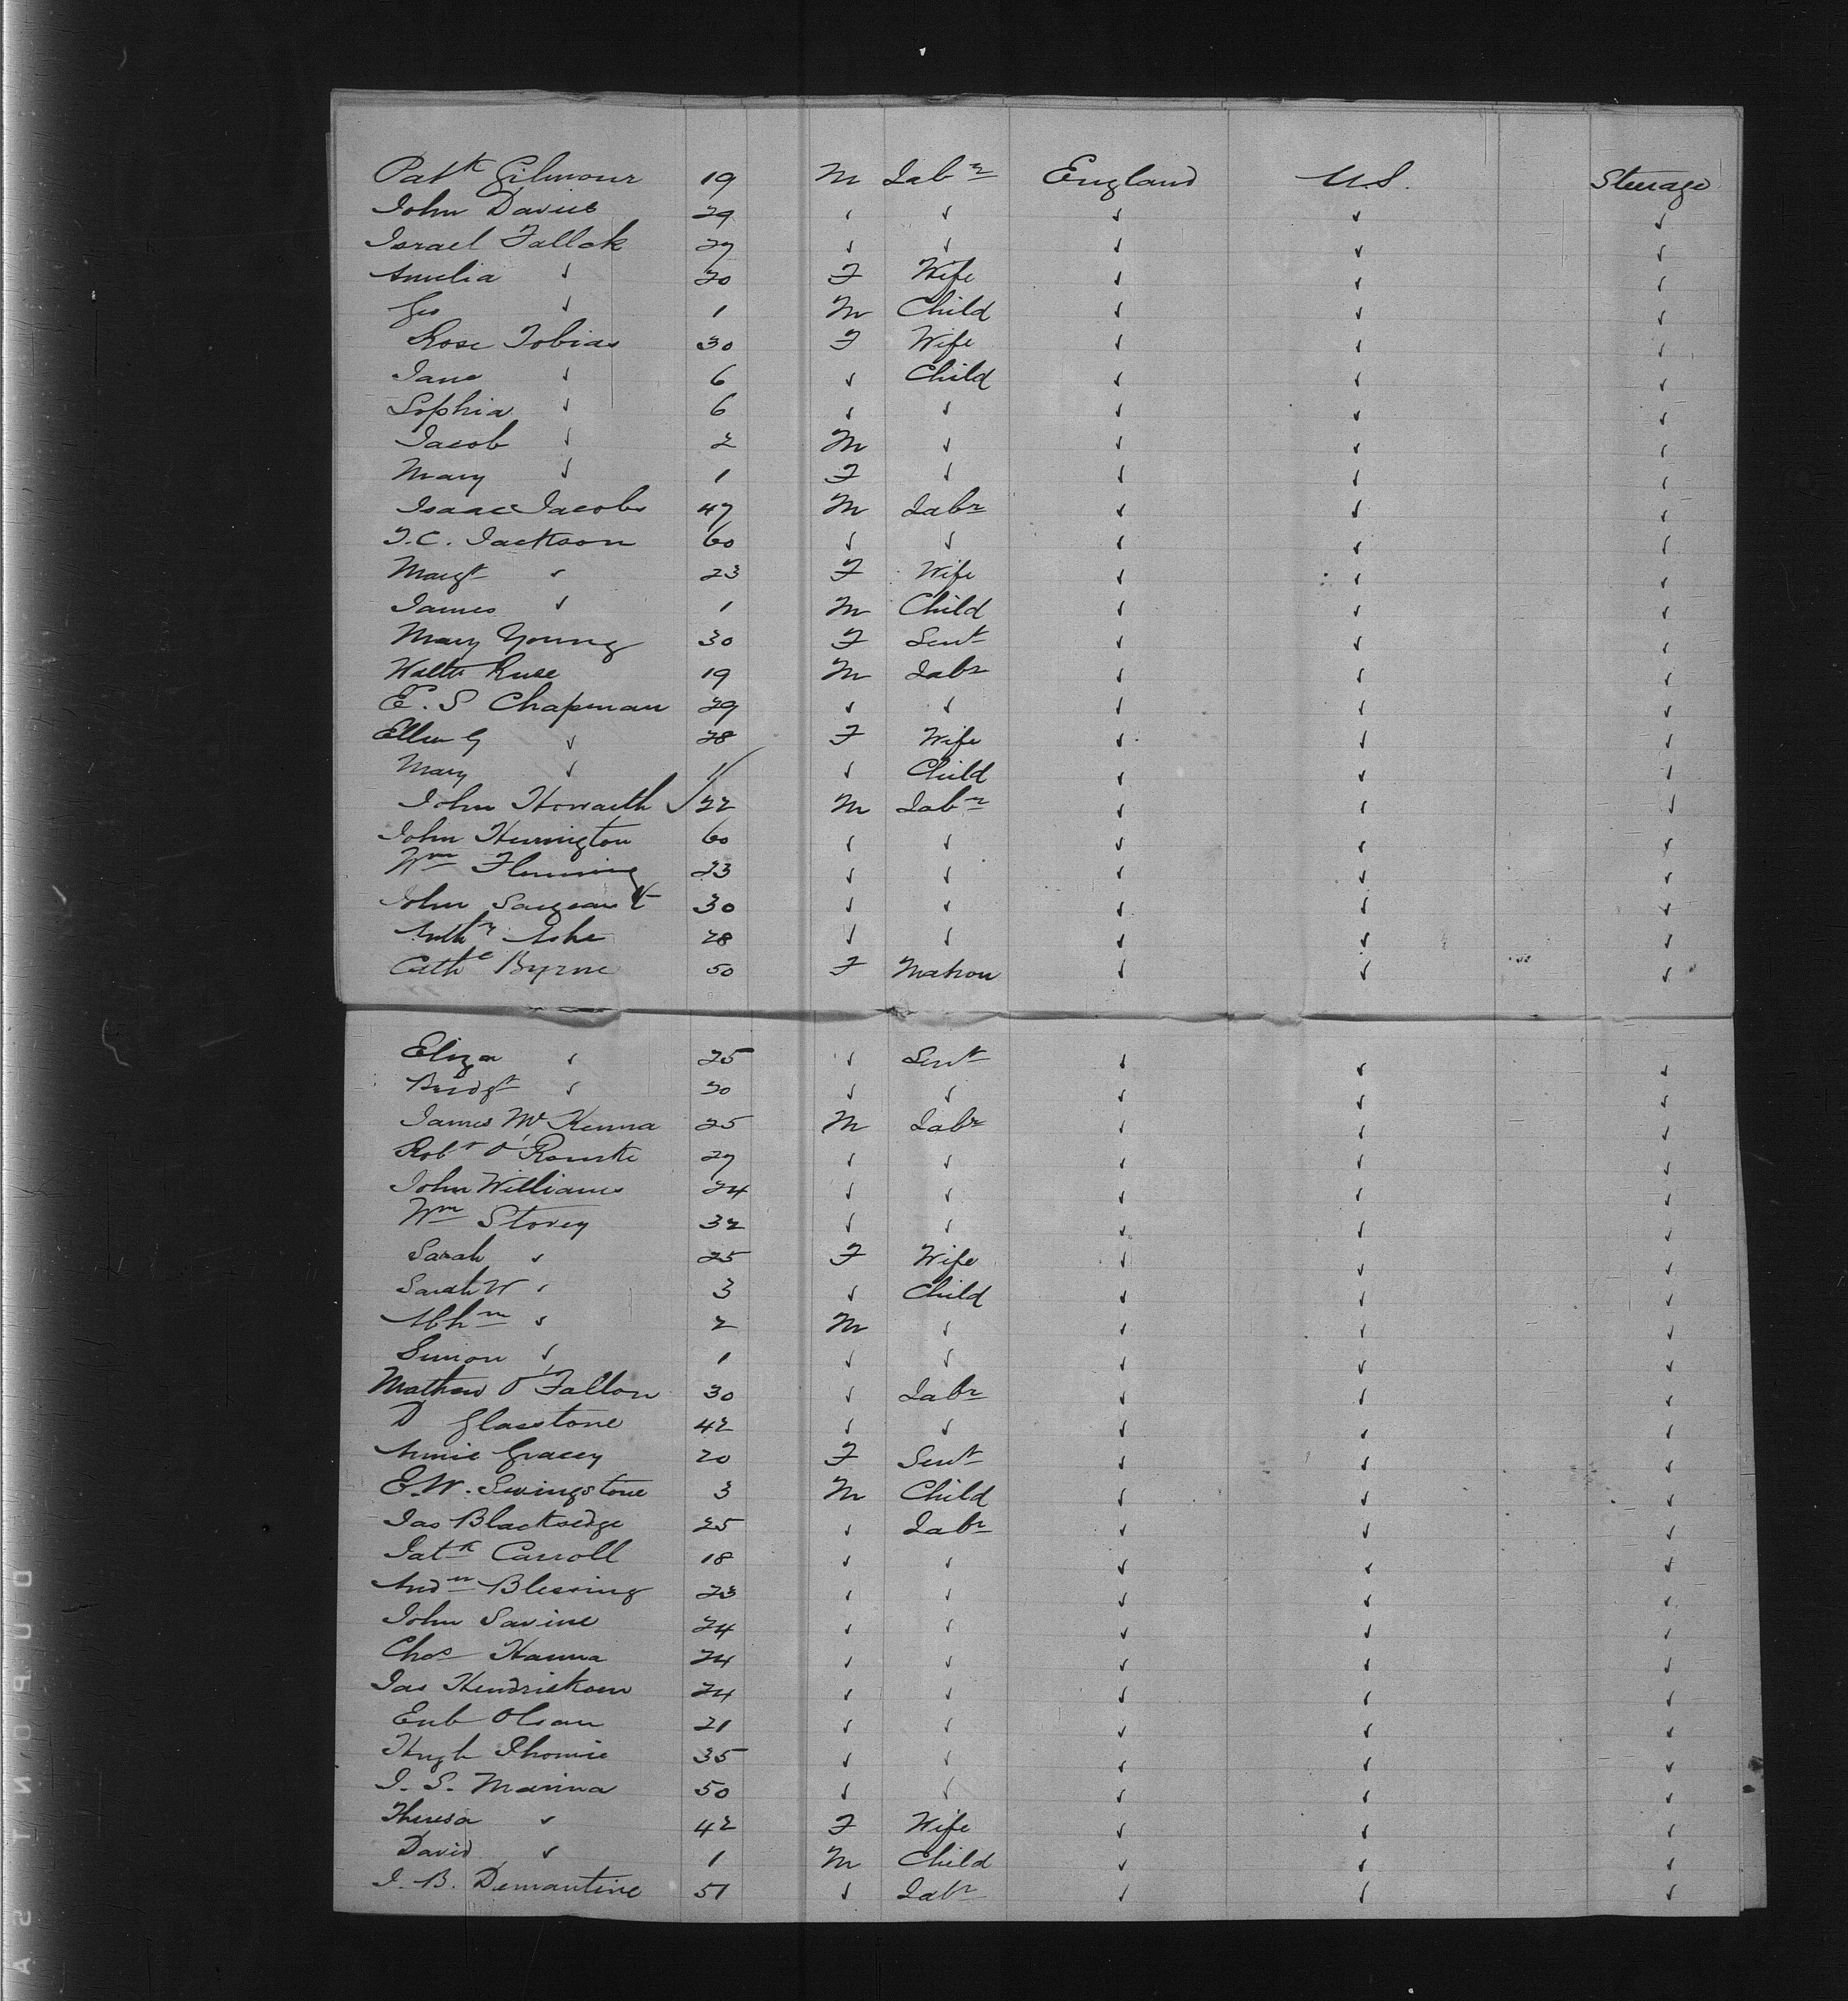 Patk Gilmour 19 M Labr England U.S. Steerage
John Davies 29 ✓ ✓ ✓ ✓ ✓
Israel Fallck 27 ✓ ✓ ✓ ✓ ✓
Amelia ✓ 20 F Wife ✓ ✓ ✓
Geo ✓ 1 M Child ✓ ✓ ✓
Rose Tobias 30 F Wife ✓ ✓ ✓
Jane ✓ 6 ✓ Child ✓ ✓ ✓
Sophia ✓ 6 ✓ ✓ ✓ ✓ ✓
Jacob ✓ 2 M ✓ ✓ ✓ ✓
Mary ✓ 1 F ✓ ✓ ✓ ✓
Isaac Jacobs 47 M Labr ✓ ✓ ✓
J.C. Jackson 60 ✓ ✓ ✓ ✓ ✓
Margt ✓ 23 F Wife ✓ ✓ ✓
James ✓ 1 M Child ✓ ✓ ✓
Mary Young 30 F Servt ✓ ✓ ✓
Walter 19 M Labr ✓ ✓ ✓
E. S Chapman 29 ✓ ✓ ✓ ✓ ✓
Ellen G ✓ 28 F Wife ✓ ✓ ✓
Mary ✓ 1 ✓ Child ✓ ✓ ✓
John Howarth 22 M Labr ✓ ✓ ✓
John Hunnington 60 ✓ ✓ ✓ ✓ ✓
Wm Fleming 23 ✓ ✓ ✓ ✓ ✓
John Sargeant 30 ✓ ✓ ✓ ✓ ✓
Anthy Ashe 28 ✓ ✓ ✓ ✓ ✓
Cathe Byrne 50 F Matron ✓ ✓ ✓
Eliza ✓ 25 ✓ Servt ✓ ✓ ✓
Bridgt ✓ 20 ✓ ✓ ✓ ✓ ✓
James McKenna 25 M Labr ✓ ✓ ✓
Robt O'Rourke 27 ✓ ✓ ✓ ✓ ✓
John Williams 24 ✓ ✓ ✓ ✓ ✓
Wm Storey 32 ✓ ✓ ✓ ✓ ✓
Sarah ✓ 25 F Wife ✓ ✓ ✓
Sarah W ✓ 3 ✓ Child ✓ ✓ ✓
Abhm ✓ 2 M ✓ ✓ ✓ ✓
Simon ✓ 1 ✓ ✓ ✓ ✓ ✓
Mathew O'Fallon 30 ✓ Labr ✓ ✓ ✓
D Glasstone 42 ✓ ✓ ✓ ✓ ✓
Annie Gracey 20 F Servt ✓ ✓ ✓
E.W. Swingstone 3 M Child ✓ ✓ ✓
Jas Blacksedge 25 ✓ Labr ✓ ✓ ✓
Patk Carroll 18 ✓ ✓ ✓ ✓ ✓
Andw Blessing 23 ✓ ✓ ✓ ✓ ✓
John Savine 24 ✓ ✓ ✓ ✓ ✓
Chas Hanna 24 ✓ ✓ ✓ ✓ ✓
Jas Hendricksen 24 ✓ ✓ ✓ ✓ ✓
Olsan 21 ✓ ✓ ✓ ✓ ✓
Hugh 35 ✓ ✓ ✓ ✓ ✓
J. S. Marina 50 ✓ ✓ ✓ ✓ ✓
Theresa ✓ 42 F Wife ✓ ✓ ✓
David ✓ 1 M Child ✓ ✓ ✓
J. B. Demantine 51 ✓ Labr ✓ ✓ ✓